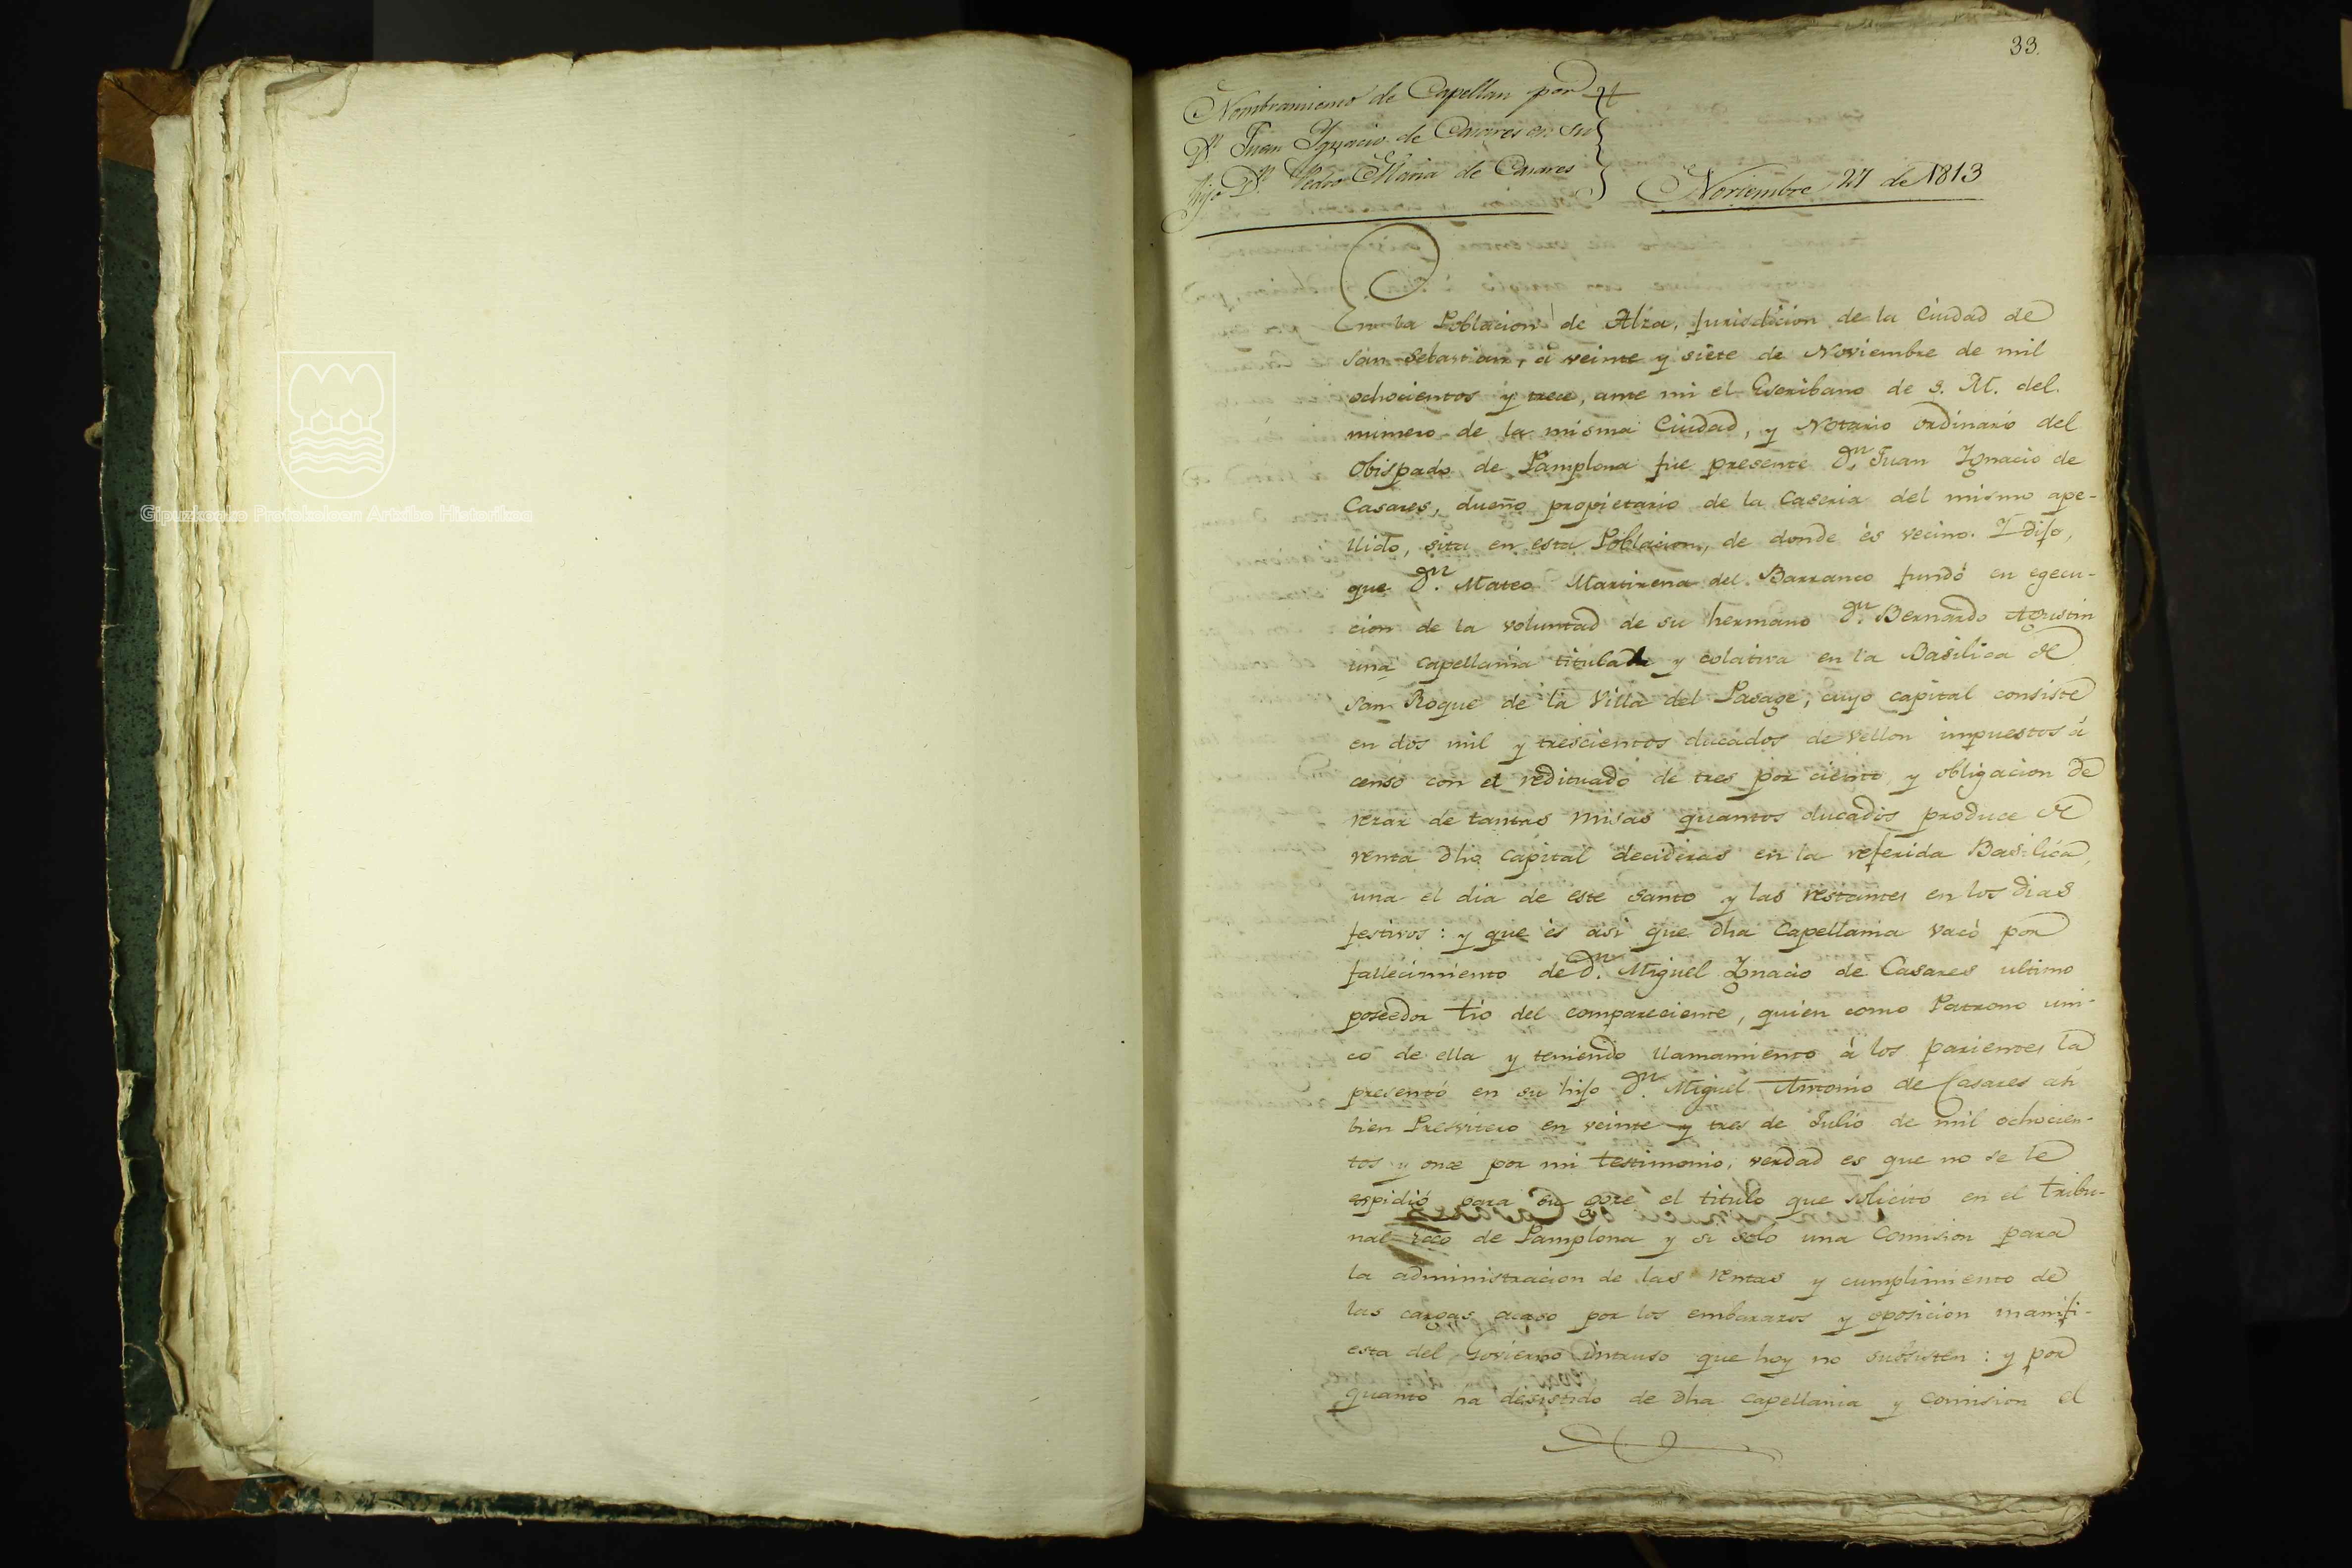 33.
Nombramiento de Capellan por
Dn. Juan Ygnacio de Casares en su
hijo Dn. Pedro Maria de Casares
Noviembre 27 de 1813
En la Poblacion de Alza, Jurisdicion de la Ciudad de
San Sebastian, á veinte y siete de Noviembre de mil
ochocientos y trece, ante mi el Escribano de S. M. del
numero de la misma Ciudad, y Notario ordinario del
Obispado de Pamplona fue presente Dn. Juan Ygnacio de
Casares, dueño propietario de la Caseria del mismo ape-
llido, sita en esta Poblacion, de donde és vecino. Y dijo,
que Dn. Mateo Martirena del Barranco fundó en egecu-
cion de la voluntad de su hermano Dn. Bernardo Agustin
una capellania titulada y colativa en la Basilica de
San Roque de la Villa del Pasage, cuyo capital consiste
en dos mil y trescientos ducados de vellon impuestos á
censo con el redituado de tres por ciento, y obligacion de
rezar de tantas misas quantos ducados produce de
renta dho capital decideras en la referida Basilica,
una el dia de este Santo y las restantes en los dias
festivos: y que és asi que dha Capellania vacó por
fallecimiento de Dn. Miguel Ygnacio de Casares ultimo
poseedor tio del compareciente, quien como Patrono uni-
co de ella y teniendo llamamiento á los parientes la
presentó en su hijo Dn. Miguel Antonio de Casares
bien Presvitero en veinte y tres de Julio de mil ochocien-
tos y once por mi testimonio, verdad es que no se le
espidió para su goze el titulo que solicitó en el Tribu-
nal de Pamplona y si solo una Comision para
la administracion de las rentas y cumplimiento de
las cargas acaso por los embarazos y oposicion manifi-
esta del Govierno intruso que hoy no subsisten: y por
quanto ha desistido de dha capellania y comision el
Gipuzkoako Protokoloen Artxibo Historikoa